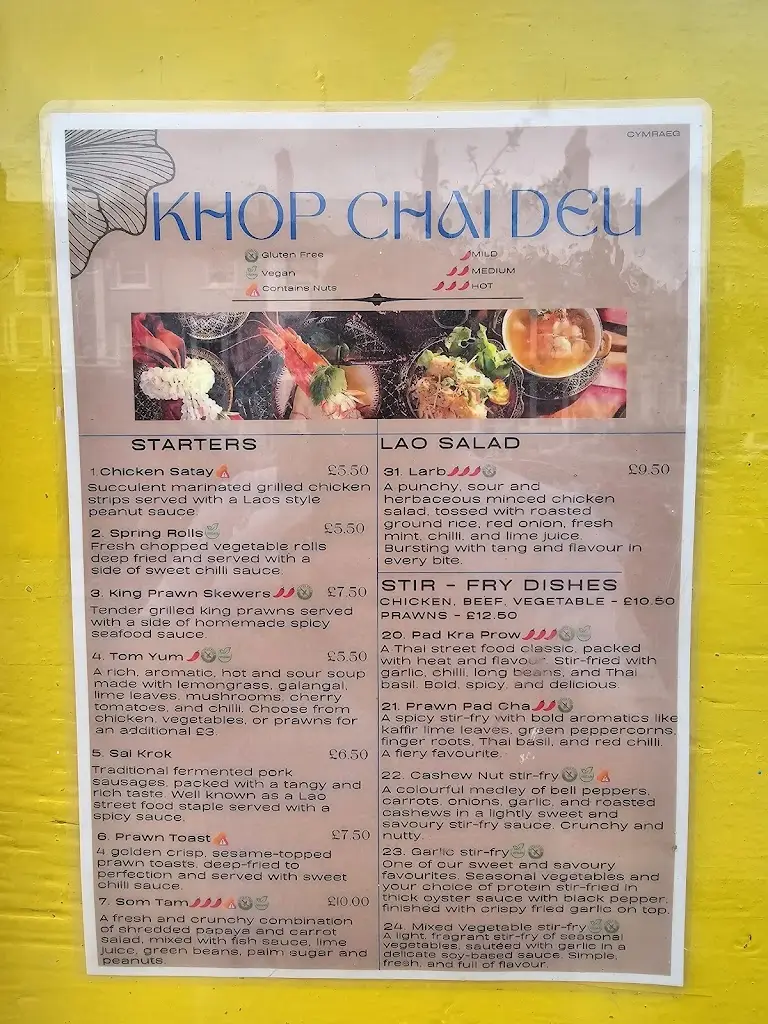 CYMRAEG
KHOP CHAI DEU
Gluten Free
Vegan
Contains Nuts
MILD
MEDIUM
HOT
STARTERS
1.Chicken Satay £5.50
Succulent marinated grilled chicken
strips served with a Laos style
peanut sauce.
2. Spring Rolls £5.50
Fresh chopped vegetable rolls
deep fried and served with a
side of sweet chilli sauce.
3. King Prawn Skewers £7.50
Tender grilled king prawns served
with a side of homemade spicy
seafood sauce.
4. Tom Yum £5.50
A rich, aromatic, hot and sour soup
made with lemongrass, galangal,
lime leaves, mushrooms, cherry
tomatoes, and chilli. Choose from
chicken, vegetables, or prawns for
an additional £3.
5. Sai Krok £6.50
Traditional fermented pork
sausages, packed with a tangy and
rich taste. Well known as a Lao
street food staple served with a
spicy sauce.
6. Prawn Toast £7.50
4 golden crisp, sesame-topped
prawn toasts, deep-fried to
perfection and served with sweet
chilli sauce.
7. Som Tam £10.00
A fresh and crunchy combination
of shredded papaya and carrot
salad, mixed with fish sauce, lime
juice, green beans, palm sugar and
peanuts.
LAO SALAD
31. Larb £9.50
A punchy, sour and
herbaceous minced chicken
salad, tossed with roasted
ground rice, red onion, fresh
mint, chilli, and lime juice.
Bursting with tang and flavour in
every bite.
STIR - FRY DISHES
CHICKEN, BEEF, VEGETABLE - £10.50
PRAWNS - £12.50
20. Pad Kra Prow
A Thai street food classic, packed
with heat and flavour. Stir-fried with
garlic, chilli, long beans, and Thai
basil. Bold, spicy, and delicious.
21. Prawn Pad Cha
A spicy stir-fry with bold aromatics like
kaffir lime leaves, green peppercorns,
finger roots, Thai basil, and red chilli.
A fiery favourite.
22. Cashew Nut stir-fry
A colourful medley of bell peppers,
carrots, onions, garlic, and roasted
cashews in a lightly sweet and
savoury stir-fry sauce. Crunchy and
nutty.
23. Garlic stir-fry
One of our sweet and savoury
favourites. Seasonal vegetables and
your choice of protein stir-fried in
thick oyster sauce with black pepper,
finished with crispy fried garlic on top.
24. Mixed Vegetable stir-fry
A light, fragrant stir-fry of seasonal
vegetables, sautéed with garlic in a
delicate soy-based sauce. Simple,
fresh, and full of flavour.